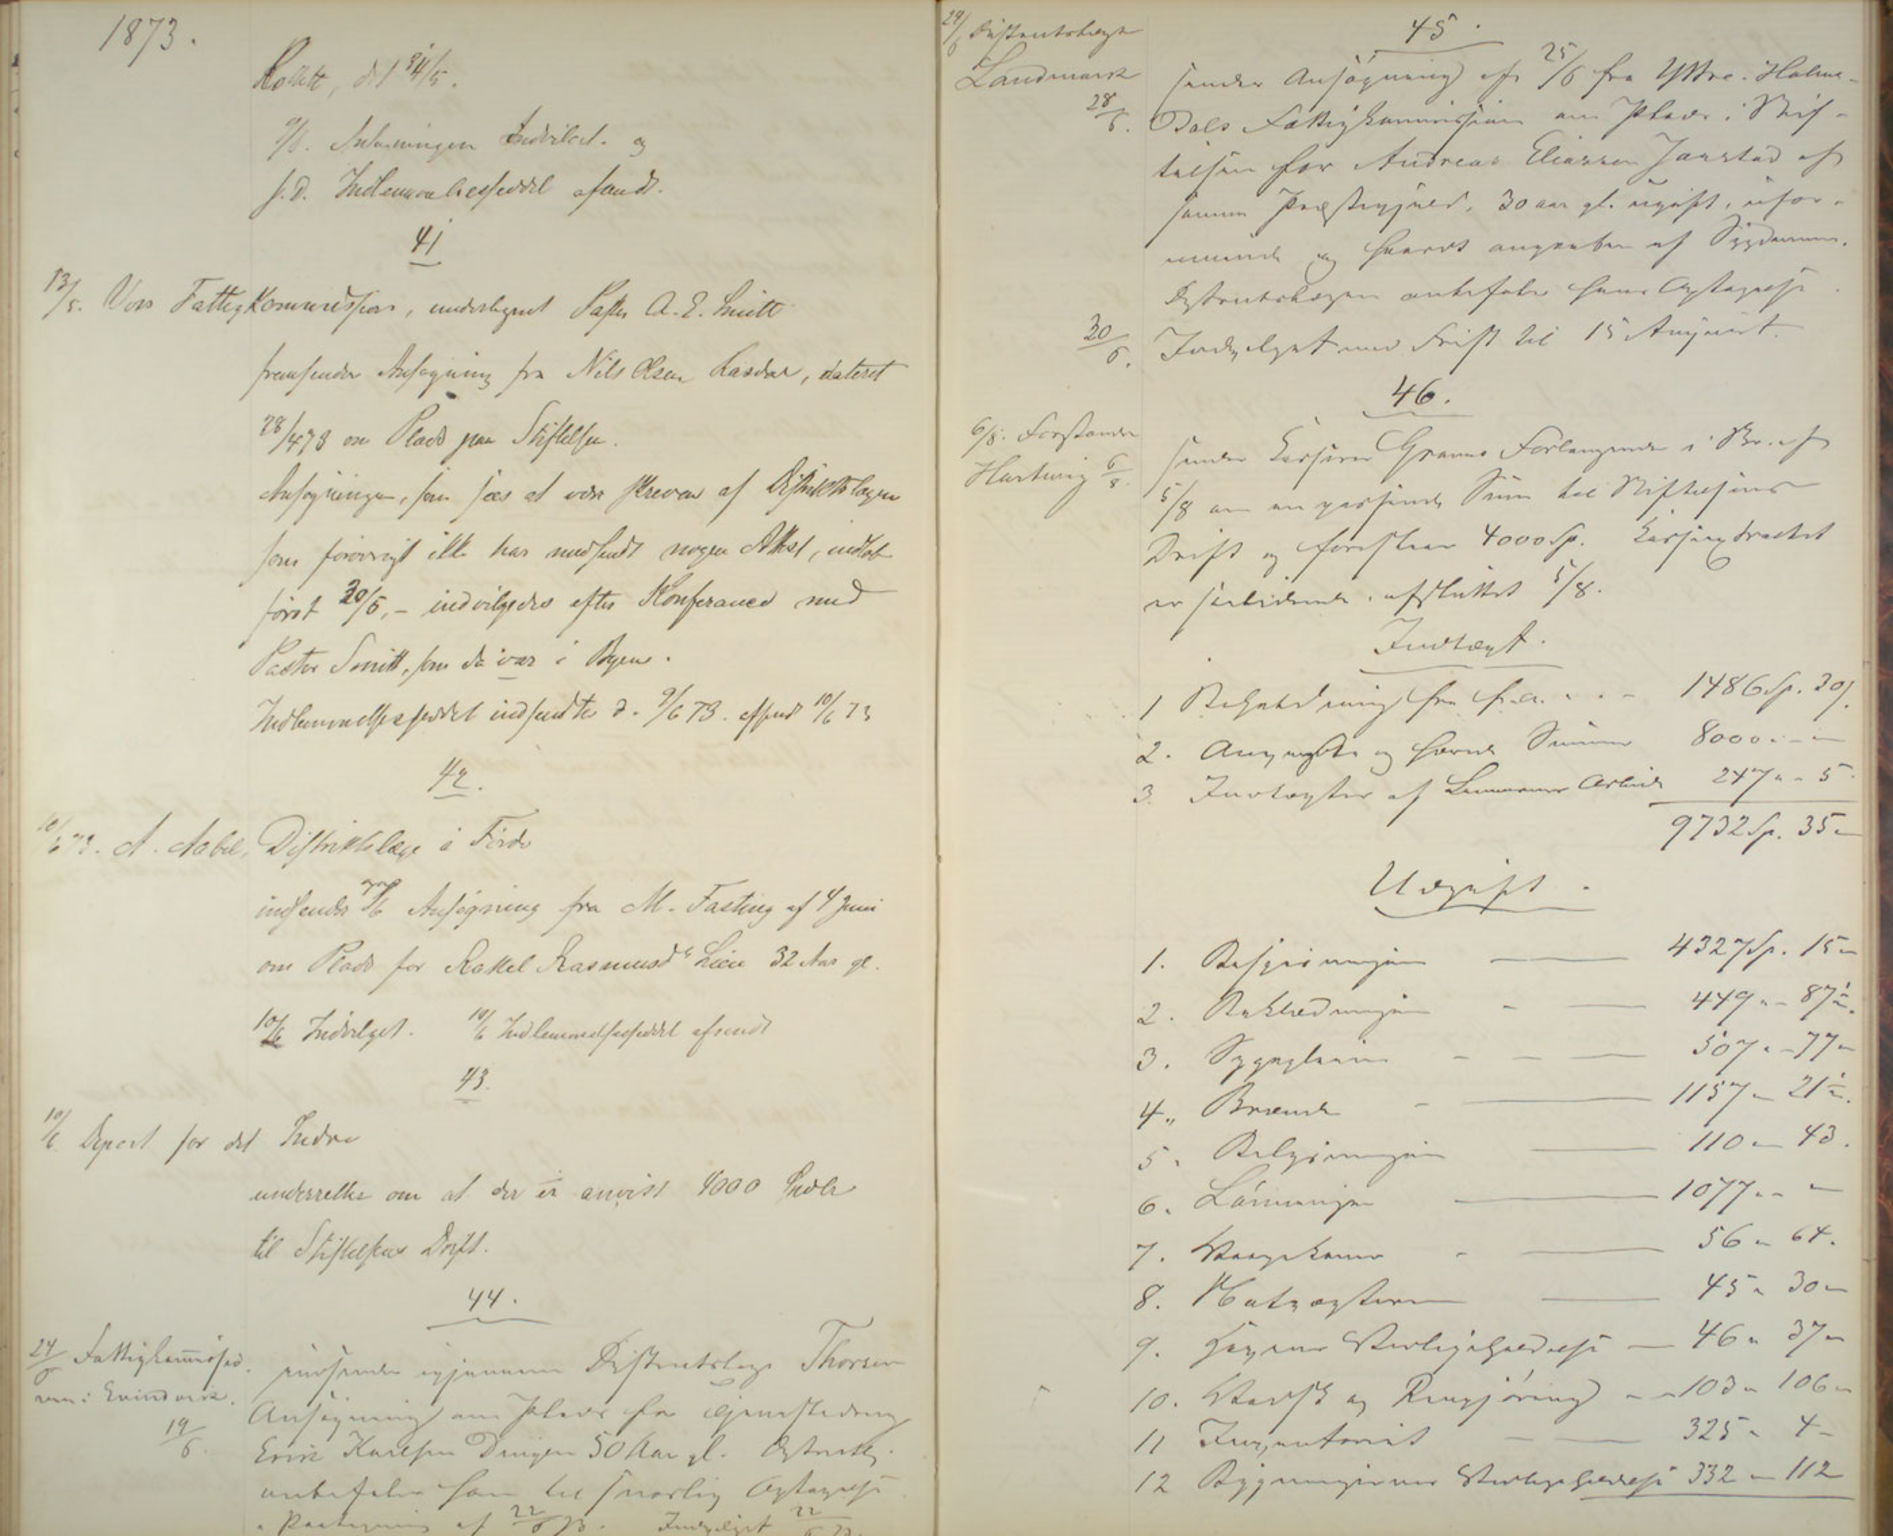 1873.
9/6. Indvilget. og
s. D. Indlemmelsesseddel afsendt.
41
13/5. Vors Fattigkommission, undertegnet Pastor A. E. Smitt
fremsender Ansøgning fra Nils Olsen, dateret
28/4 73 om Plads paa Stiftelsen.
Ansøgningen, som sees at være skreven af Distriktslægen
som forøvrigt ikke har medsendt nogen Attest, indløb
først 20/5, - indvilgedes efter Konferance med
Pastor Smitt, som da var i Byen.
Indlemmelsesseddel indsendte d. 9/6 73. afsendt 10/6 73
42.
10/6 73. A. Aabel, Distriktslæge i Førde
indsender Ansøgning fra M. Fasting af 4 Juni
om Plads for Rakel Rasmusdr Lien 32 Aar gl.
10/6 Indvilget. 10/6 Indlemmelsesseddel afsendt
43.
10/6 Depart for det Indre
underretter om at der er anvist 4000 Spdlr
til Stiftelsens Drift.
44.
24/6 Fattigkommissio-
nen i Evindvik.
19/6.
indsender igjennem Distriktslæge Thorsen
Ansøgning om Plads for
Erik Karlsen 50 Aar gl. Distriktsl.
anbefaler ham til snarlig Optagelse
i Paategning af 22/6 73. Indvilget 22/6 73.
29/6 Distriktslæge
Landmark
28/6.
45.
sender Ansøgning af 25/6 fra Yttre Holme-
dals Fattigkommission om Plads i Stif-
telsen for Andreas Eliassen af
samme Præstegjeld, 30 aar gl. ugift, ufor-
muende og haardt angreben af Sygdommen.
Distriktslægen anbefaler hans Optagelse.
30/6. Indvilget med Frist til 15 August.
46.
6/8. Forstander
Hartwig 6/8.
sender Kasserer Grams Forlangende i Br. af
5/8 om en passende Sum til Stiftelsens
Drift og foreslaar 4000 Sp. Kasseextractet
er saalydende: afsluttet 5/8.
Indtægt.
1 Beholdning fra f. A. . . - 1486 Sp. 30 s.
2. Anviste og hævede Summer 8000 " - "
3. Indtægter af Lemmernes Arbeide 247 " - 5
9732 Sp. 35 "
Udgift.
1. Bespisningen — 4327 Sp. 15 "
2. Beklædningen - — 449 " - 87½.
3. Sygepleien - - — 507 " - 77 "
4. Brænde - — 1157 " 21½.
5. Belysningen — 110 " 43.
6. Lønninger — 1077 " - "
7. - — 56 " 64.
8. — 45 " 30 "
9. Havens Vedligeholdelse — 46 " 37 "
10. Vadsk og Rengjøring - - 103 " 106 "
11 Inventariet - — 325 " 4 -
12 Bygningernes Vedligeholdelse 332 " 112